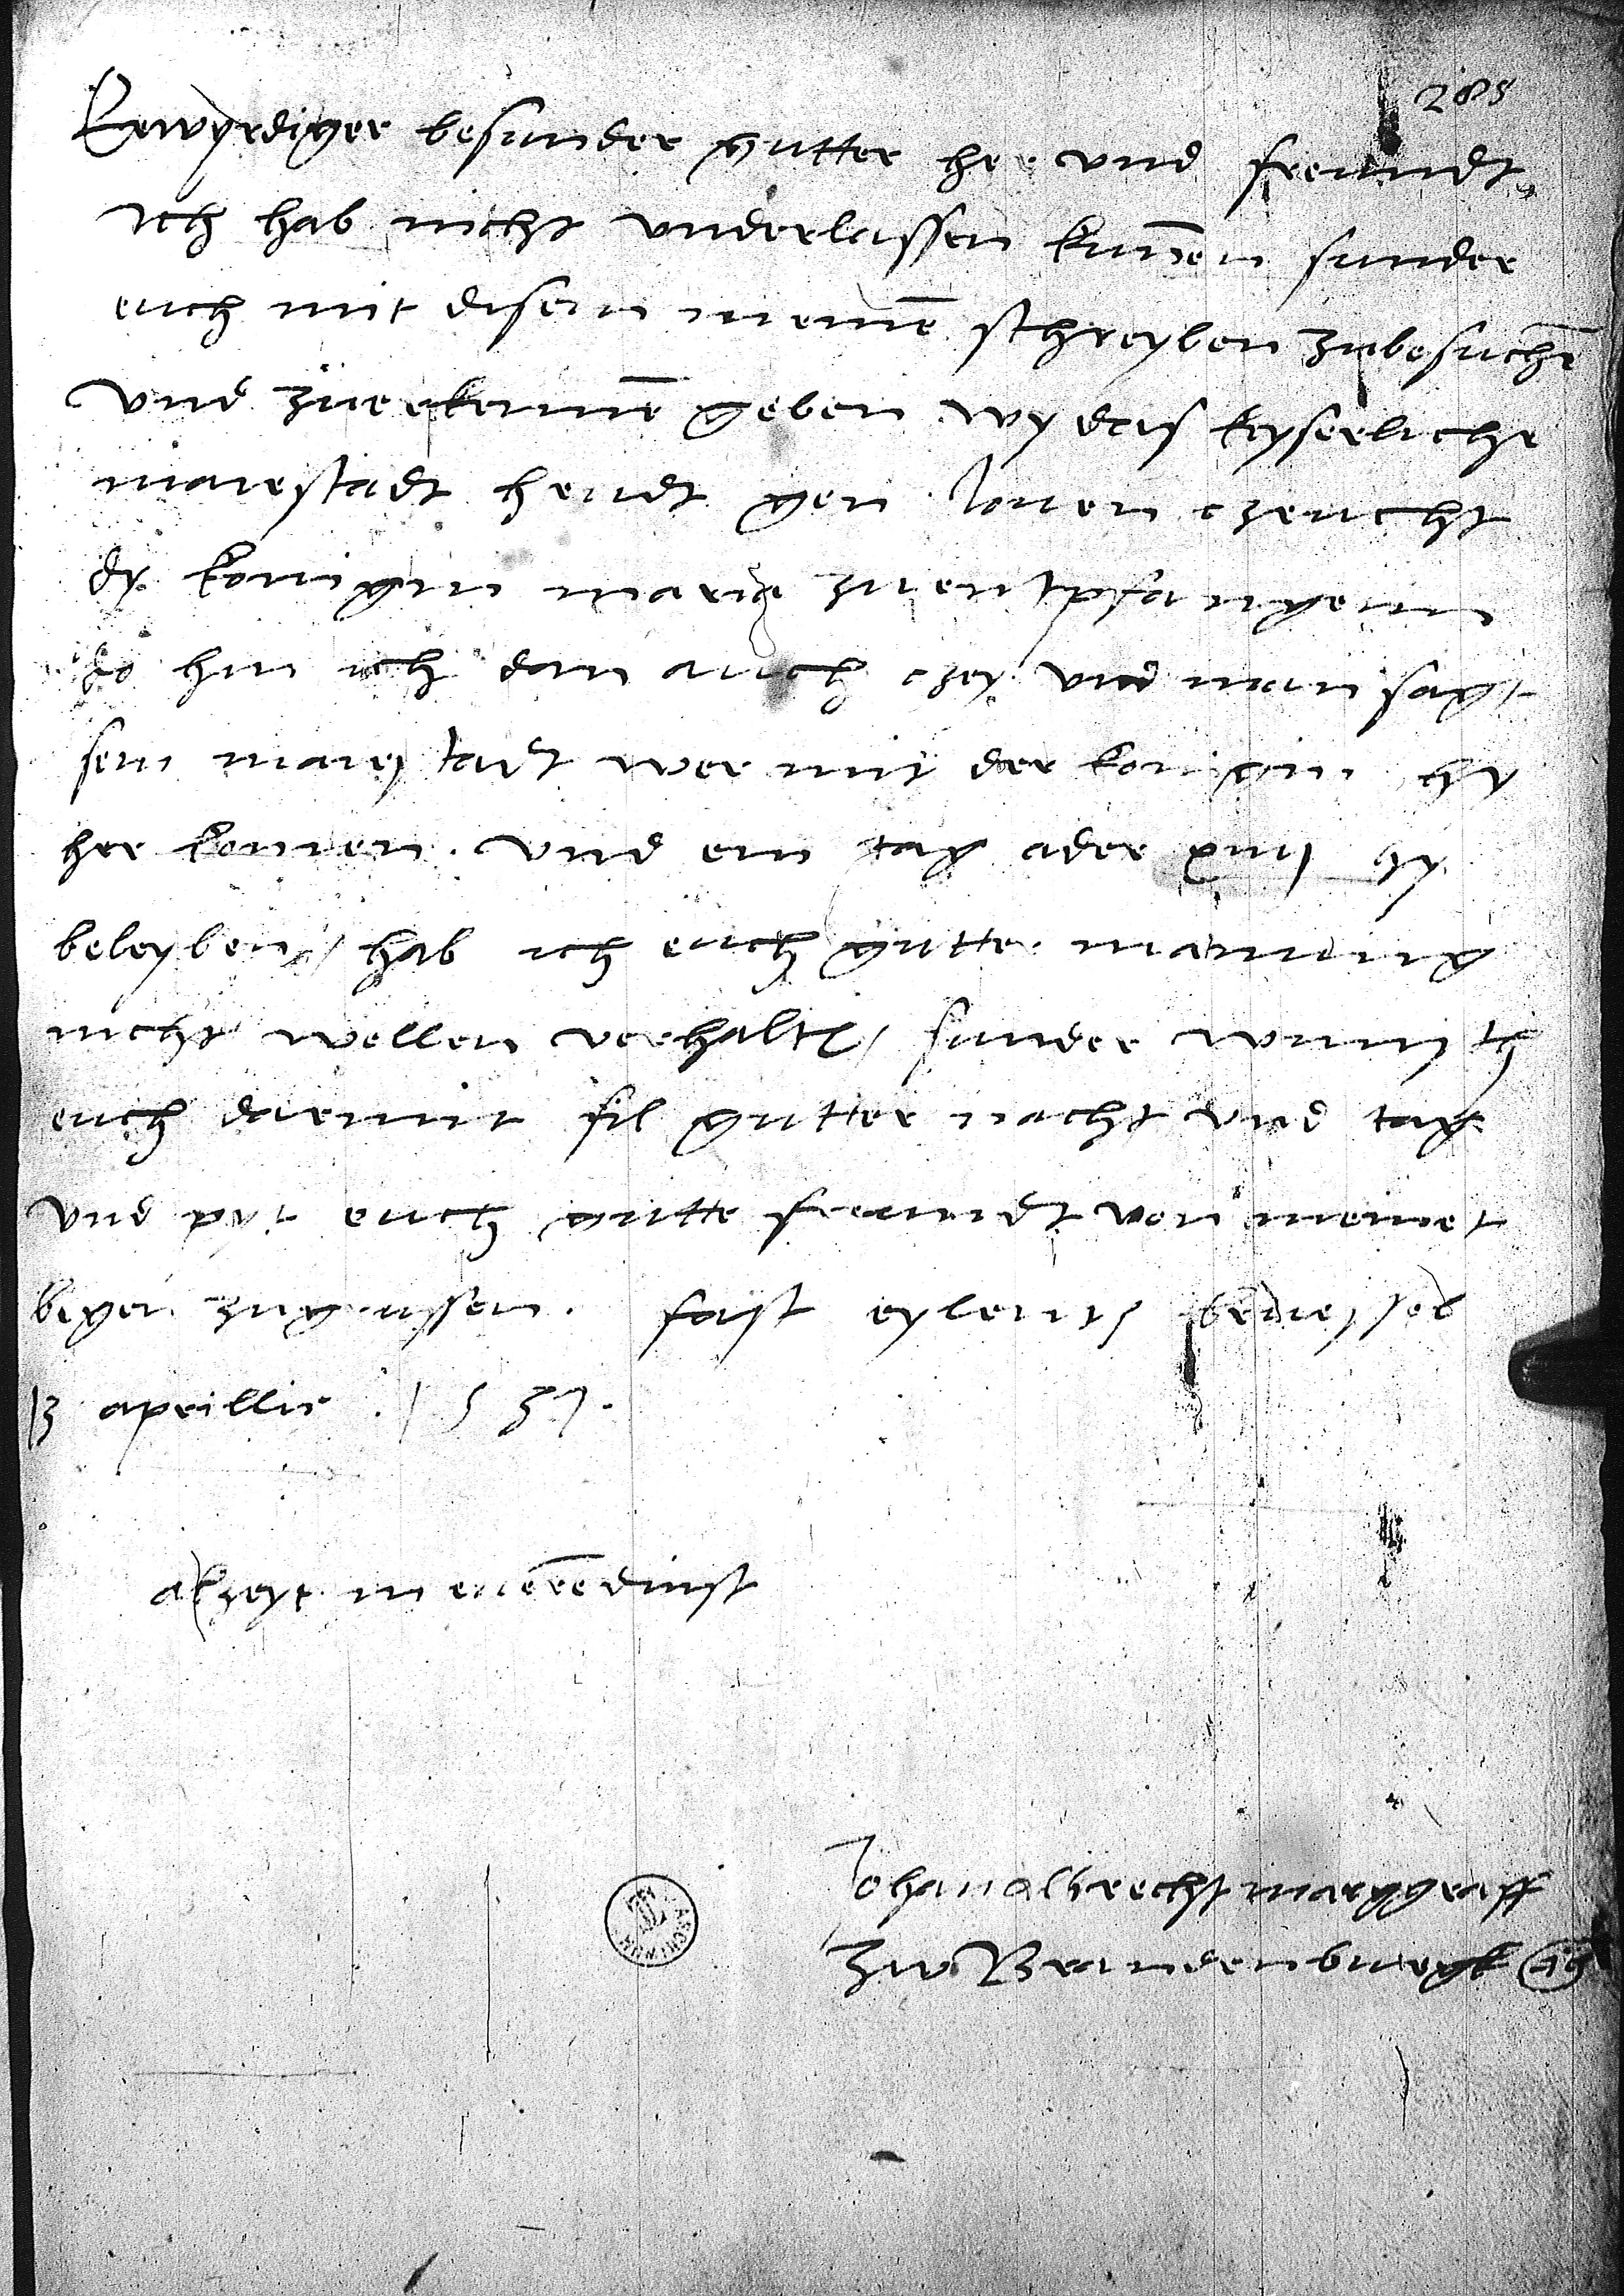 285
Erwyrdiger besunder gutter her vnd freundt
ich hab nicht vnderlassen kunnen sunder
euch mit disem meinē schreyben zubesuchē
vnd zuerkennē geben wy das kyserliche
maiestadt heudt gen Louen czeucht
dy konigin maria zuentpfangenn
do hin ich dan auch czey vnd man sagt
sein maiestadt wer mit der konigin hy
her komen. vnd ein tag ader hy
beleyben / hab ich euch gutte
nicht wellen verhaltē / sunder wunsch
euch darmit fil gutter nacht vnd tag
vnd euch gutte freundt von meinet
wegen zugrussen. fast eylents
13 aprillis . 1537.
alzeyt in euerē dinst
Johan Albrecht marggraff
zu Brandenburg &